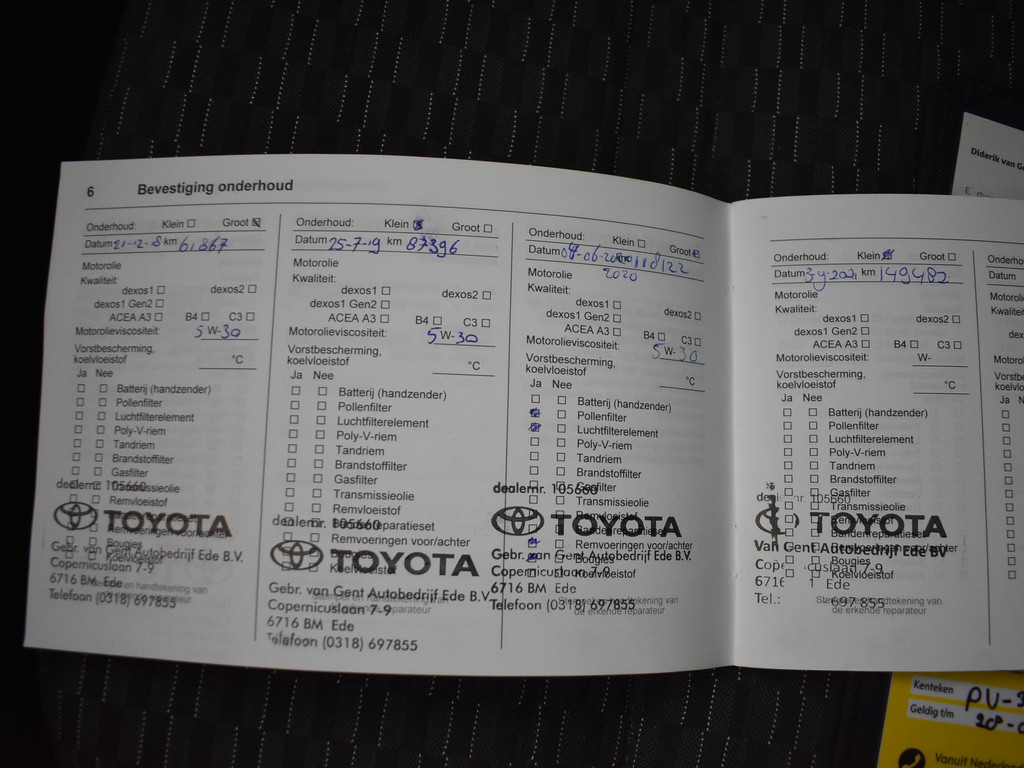 6 Bevestiging onderhoud
Onderhoud: Klein Groot
Datum 21-12-18 km 61.867
Motorolie
Kwaliteit:
dexos1 dexos2
dexos1 Gen2
ACEA A3 B4 C3
Motorolieviscositeit: 5 W-30
Vorstbescherming,
koelvloeistof °C
Ja Nee
Batterij (handzender)
Pollenfilter
Luchtfilterelement
Poly-V-riem
Tandriem
Brandstoffilter
Gasfilter
Transmissieolie
Remvloeistof
dealernr. 105660
TOYOTA
Gebr. van Gent Autobedrijf Ede B.V.
Copernicuslaan 7-9
6716 BM Ede
Telefoon (0318) 697855
Onderhoud: Klein Groot
Datum 25-7-19 km 87396
Motorolie
Kwaliteit:
dexos1 dexos2
dexos1 Gen2
ACEA A3 B4 C3
Motorolieviscositeit: 5 W-30
Vorstbescherming,
koelvloeistof °C
Ja Nee
Batterij (handzender)
Pollenfilter
Luchtfilterelement
Poly-V-riem
Tandriem
Brandstoffilter
Gasfilter
Transmissieolie
Remvloeistof
Bandenreparatieset
Remvoeringen voor/achter
Bougies
Koelvloeistof
dealernr. 105660
TOYOTA
Gebr. van Gent Autobedrijf Ede B.V.
Copernicuslaan 7-9
6716 BM Ede
Telefoon (0318) 697855
Onderhoud: Klein Groot
Datum 04-06-2020 km 118122
2020
Motorolie
Kwaliteit:
dexos1 dexos2
dexos1 Gen2
ACEA A3 B4 C3
Motorolieviscositeit: 5 W-30
Vorstbescherming,
koelvloeistof °C
Ja Nee
Batterij (handzender)
Pollenfilter
Luchtfilterelement
Poly-V-riem
Tandriem
Brandstoffilter
Gasfilter
Transmissieolie
Remvloeistof
Bandenreparatieset
Remvoeringen voor/achter
Bougies
Koelvloeistof
dealernr. 105660
TOYOTA
Gebr. van Gent Autobedrijf Ede B.V.
Copernicuslaan 7-9
6716 BM Ede
Telefoon (0318) 697855
Onderhoud: Klein Groot
Datum 3-9-2021 km 149482
Motorolie
Kwaliteit:
dexos1 dexos2
dexos1 Gen2
ACEA A3 B4 C3
Motorolieviscositeit: W-
Vorstbescherming,
koelvloeistof °C
Ja Nee
Batterij (handzender)
Pollenfilter
Luchtfilterelement
Poly-V-riem
Tandriem
Brandstoffilter
Gasfilter
Transmissieolie
Remvloeistof
Bandenreparatieset
Remvoeringen voor/achter
Bougies
Koelvloeistof
105660
TOYOTA
Van Gent Autobedrijf Ede BV
Copernicuslaan 7-9
Ede
Tel.: 697855
Stempel en handtekening van
de erkende reparateur
Onderhoud:
Datum
Diderik van G
Kenteken PV-
Geldig t/m 28-0
Vanuit Nederland